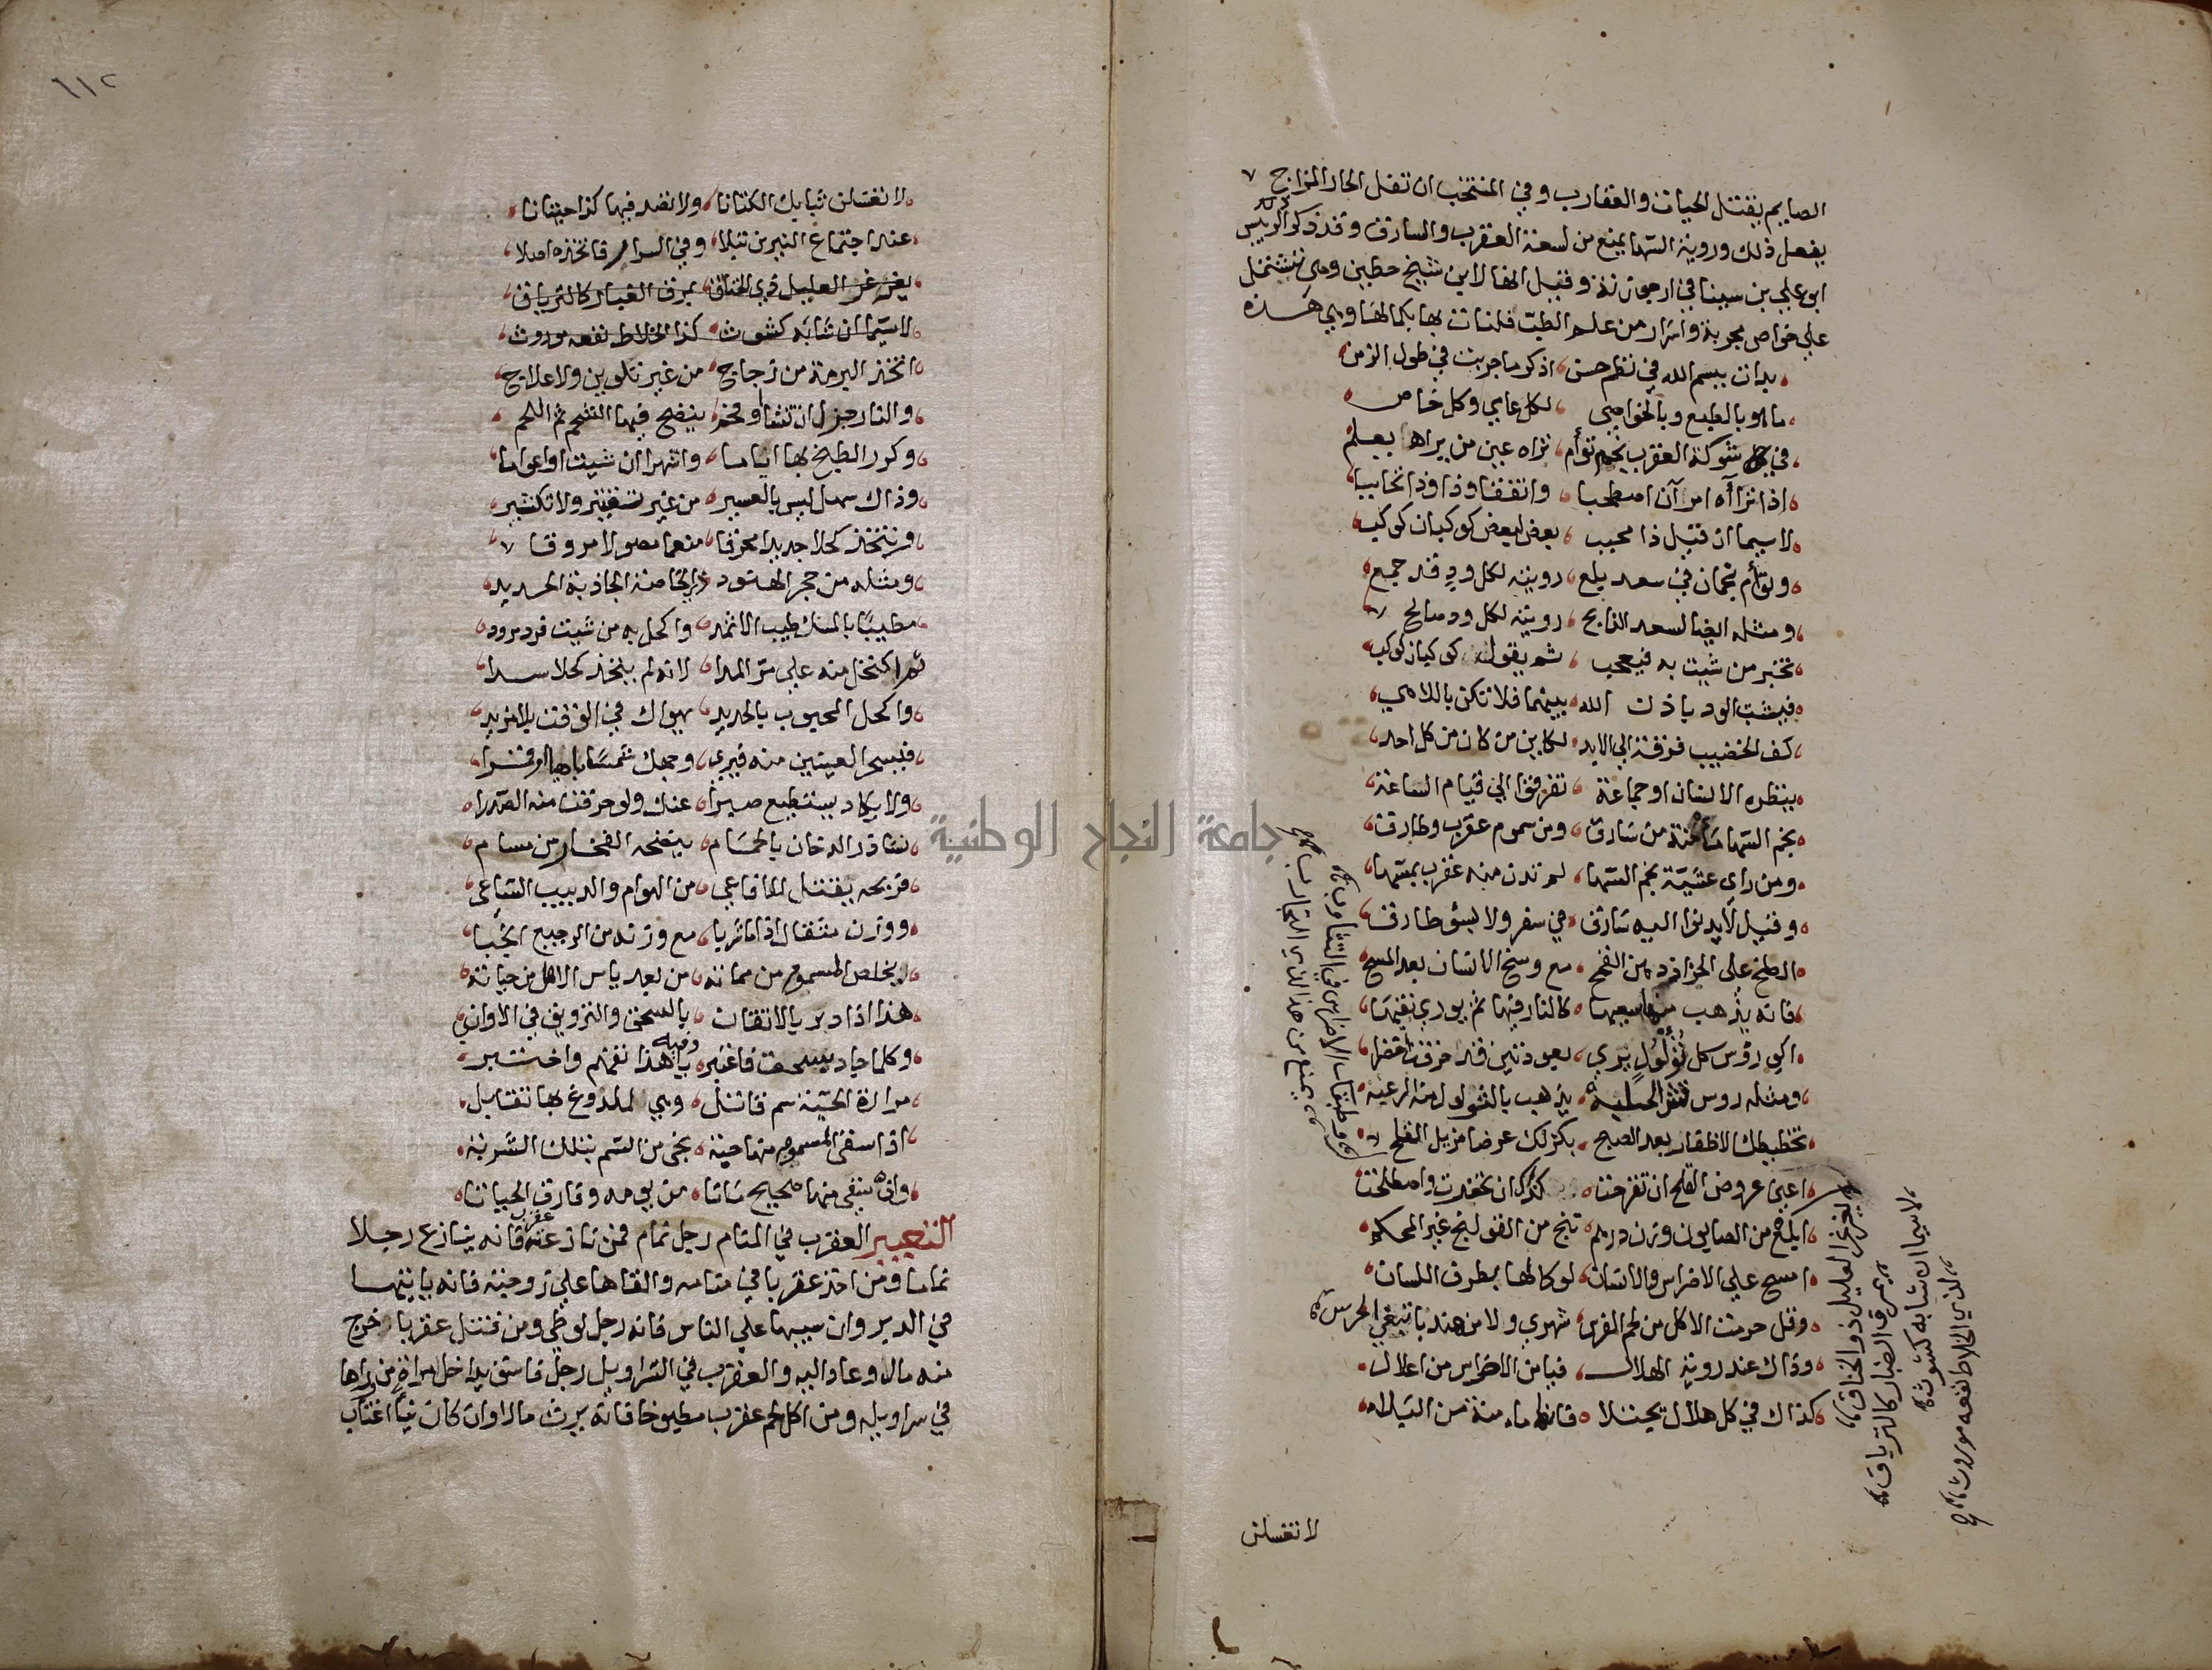 الصايم يقتل الحيات والعقارب وفي المنتخب ان تفل الحار المزاج
يفعل ذلك وروية السها يمنع من لسعة العقرب والسارق وقد ذكر الريس
ابو علي بن سينا في ارجوزته وقيل انها لابن شيخ حطين وهي تشتمل
علي خواص مجربة واسرار من علم الطب فلنات بها بكمالها وهي هذه
بدات ببسم الله في نظم حسن اذكر ما جربت في طول الزمن
ما هو بالطبع وبالخواص لكل عامي وكل خاص
في شوكة العقرب نجم توأم تراه عين من يراها يعلم
اذا تراآه امرآن اصطحبا واتفقا وذا وذا تحاببا
لا سيما ان قيل ذا محبب بعض لبعض كوكبان كوكب
وتوأم نجمان في سعد بلع رويته لكل ود قد جمع
ومثله ايضا لسعد الذابح رويته لكل ود صالح
تخبر من شيت به فيعجب ثم يقول كوكبان كوكب
فيثبت الود باذن الله بينهما فلا تكن باللاهي
كف الخضيب فرقة الي الابد لكاين من كان من كل احد
ينظره الانسان او جماعة تفرقوا الي قيام الساعة
نجم السها من سارق ومن سموم عقرب وطارق
ومن راي عشية نجم السها لم تدن منه عقرب يمسها
وقيل لا يدنوا اليه سارق في سفر ولا بسوء طارق
الطخ علي الحزاز دهن القمح مع وسخ الاسنان بعد المسح
فانه يذهب كالنار فيها ثم يوري نفيها
اكوي رؤس كل ثؤلول يري بعود تين قد حرقت اخضرا
ومثله روس يذهب بالثولول منه الرعية
تخطيطك الاظفار بعد الصبح بكزلك عرضا مزيل القلح
اعني عروض القلح ان تقرحت كذاك ان تخدرت واصطلحت
ابلع من الصابون وزن درهم تنج من القولنج غير المحكم
امسح علي الاضراس والاسنان لوكا لها بطرف اللسان
وقل حرمت الاكل من لحم الفرس شهري ولا من هندبا تنبغي الحرس
وذاك عند روية الهلال فيامن الاضراس من اعلال
كذاك في كل هلال يجتلا فانها مامنة من البلاه
لا تغسلن
ويمنع من هذا الذي الحجار
يغرغر العليل ذو الخناق
بمرق الضبار كالترياق
لا سيما ان شابه كشوث
لذي الخلاط نفعه موروث
١١٢
لا تغسلن ثيابك الكتانا ولا تصد فيها كذا حيتانا
عند اجتماع النيرين تبلا وفي السرار فاتخذه اصلا
يغرغر العليل ذي الخناق بمرق الغبار كالترياق
لا سيما ان شابه كشوث كذا الخلاط نفعه موروث
اتخذ البرمة من زجاج من غير تلوين ولا علاج
والنار جزل ان تشا وفحم ينضج فيها الشحم ثم اللحم
وكرر الطبخ بها اياما واشهرا ان شيت او اعواما
وذاك سهل ليس بالعسير من غير تغيير ولا تكثير
وتتخذ كحلا حديدا محرقا منعما مصولا مروقا
ومثله من حجر الهنود ذي الخاصة الجاذبة الحديد
مطيبا بالمسك طيب الاثمد واكحل به من شيت فرد مرود
ثم اكتحل منه علي مر المدا لانه لم يتخذ كحلا سدا
واكحل المحبوب بالحديد يهواك في الوقت بلا مزيد
فيسحر العينين منه فيري وجهك شمسا باهيا او قمرا
ولا يكاد يستطيع صبرا عنك ولو حرقت منه الصدرا
نشادر الدخان بالحمام ينضحه الفخار من مسام
فريحه يقتل الافاعي من الهوام والدبيب الساعي
ووزن مثقال اذا ما شربا مع وزنه من الرجيع انجبا
يخلص المسموم من مماته من بعد ياس الاهل من حياته
هذا اذا دبر بالاتقان بالسحق والترويق في الاواني
وكلما جاد بسحق فاعتبر وقيه يا هذا تفهم واختبر
مرارة الحية سم قاتل وهي لملدوغ بها تقابل
اذا سقي المسموم منها حبة نجي من السم بتلك الشربة
وان سقي منها صحيح ماتا من يومه وفارق الحياتا
التعبير العقرب في المنام رجل نمام فمن نازعته عقرب فانه ينازع رجلا
نماما ومن اخذ عقربا في منامه والقاها علي زوجته فانه ياتيها
في الدبر وان سيبها علي الناس فانه رجل لوطي ومن قتل عقربا خرج
منه ماله وعاد اليه والعقرب في السراويل رجل فاسق يداخل امراة من راها
في سراويله ومن اكل لحم عقرب مطبوخا فانه يرث مالا وان كان نيأ اغتاب